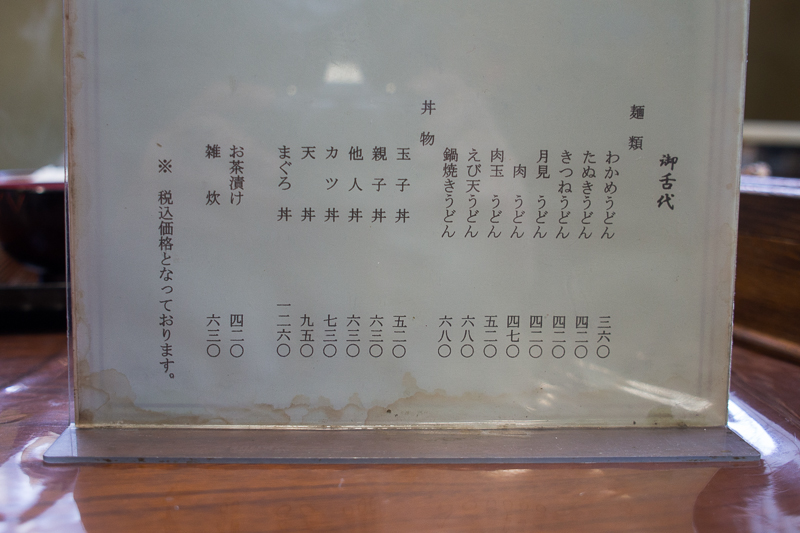 御舌代
麺類
わかめうどん 三六〇
たぬきうどん 四二〇
きつねうどん 四二〇
月見うどん 四二〇
肉うどん 四七〇
肉玉うどん 五二〇
えび天うどん 六八〇
鍋焼きうどん 六八〇
丼物
玉子丼 五二〇
親子丼 六三〇
他人丼 六三〇
カツ丼 七三〇
天丼 九五〇
まぐろ丼 一二六〇
お茶漬け 四二〇
雑炊 六三〇
※ 税込価格となっております。